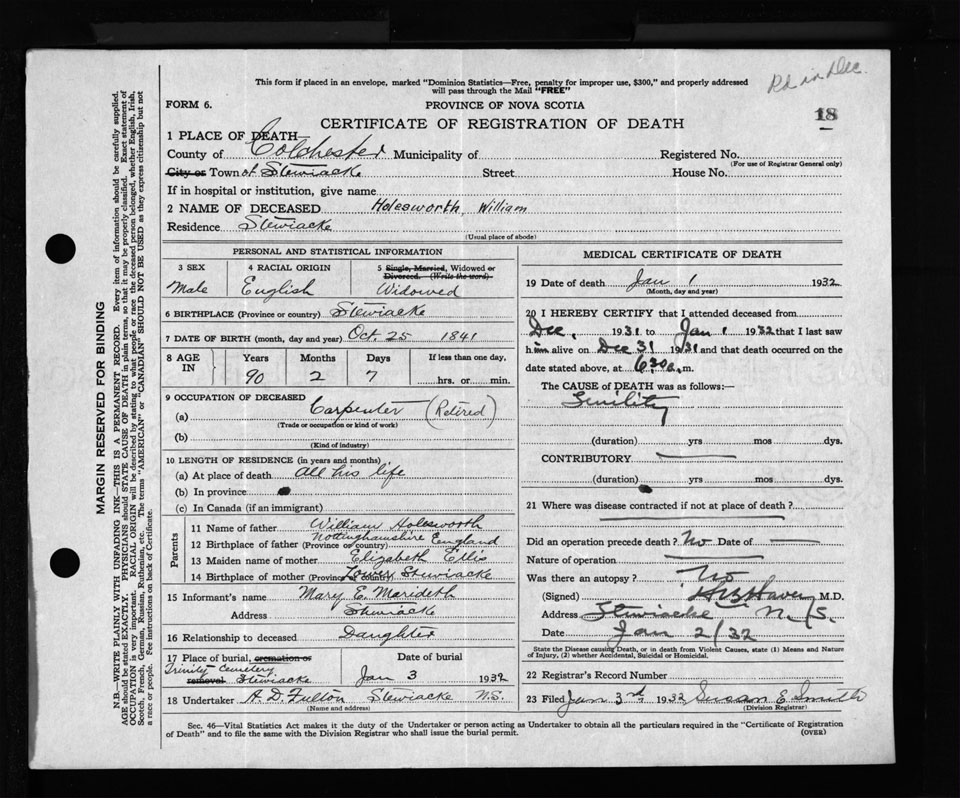 Rd in Dec.
This form if placed in an envelope, marked "Dominion Statistics—Free, penalty for improper use, $300," and properly addressed
will pass through the Mail "FREE"
FORM 6.
PROVINCE OF NOVA SCOTIA
18
CERTIFICATE OF REGISTRATION OF DEATH
1 PLACE OF DEATH—
County of Colchester Municipality of Registered No.
(For use of Registrar General only)
City or Town of Stewiacke Street House No.
If in hospital or institution, give name
2 NAME OF DECEASED Holesworth, William
Residence Stewiacke
(Usual place of abode)
PERSONAL AND STATISTICAL INFORMATION
3 SEX 4 RACIAL ORIGIN 5 Single, Married, Widowed or
Divorced. (Write the word)
Male English Widowed
6 BIRTHPLACE (Province or country) Stewiacke
7 DATE OF BIRTH (month, day and year) Oct. 25 1841
8 AGE IN Years Months Days If less than one day,
90 2 7 hrs. or min.
9 OCCUPATION OF DECEASED
(a) Carpenter (Retired)
(Trade or occupation or kind of work)
(b)
(Kind of industry)
10 LENGTH OF RESIDENCE (in years and months)
(a) At place of death All his life
(b) In province
(c) In Canada (if an immigrant)
Parents
11 Name of father William Holesworth
12 Birthplace of father (Province or country) Nottinghamshire England
13 Maiden name of mother Elizabeth Ellis
14 Birthplace of mother (Province or country) Lower Stewiacke
15 Informant's name Mary E. Marideth
Address Stewiacke
16 Relationship to deceased Daughter
17 Place of burial, cremation or Date of burial
Trinity Cemetery
removal Stewiacke Jan 3 1932
18 Undertaker A. D. Fulton Stewiacke N.S.
(Name and address)
MEDICAL CERTIFICATE OF DEATH
19 Date of death Jan 1 1932
(Month, day and year)
20 I HEREBY CERTIFY that I attended deceased from
Dec, 1931 to Jan 1 1932 that I last saw
him alive on Dec 31 1931 and that death occurred on the
date stated above, at 630 a.m.
The CAUSE of DEATH was as follows:—
Senility
(duration) yrs mos dys.
CONTRIBUTORY
(duration) yrs mos dys.
21 Where was disease contracted if not at place of death?
Did an operation precede death? No Date of
Nature of operation
Was there an autopsy? No
(Signed) M.D.
Address Stewiacke N./S.
Date Jan 2/32
State the Disease causing Death, or in death from Violent Causes, state (1) Means and Nature
of Injury, (2) whether Accidental, Suicidal or Homicidal.
22 Registrar's Record Number
23 Filed Jan 3rd 1932 Susan E. Smith
(Division Registrar)
Sec. 46—Vital Statistics Act makes it the duty of the Undertaker or person acting as Undertaker to obtain all the particulars required in the "Certificate of Registration
of Death" and to file the same with the Division Registrar who shall issue the burial permit.
(OVER)
MARGIN RESERVED FOR BINDING
N.B.—WRITE PLAINLY WITH UNFADING INK—THIS IS A PERMANENT RECORD. Every item of information should be carefully supplied.
AGE should be stated EXACTLY. PHYSICIANS should STATE CAUSE OF DEATH in plain terms, so that it may be properly classified. Exact statement of
OCCUPATION is very important. RACIAL ORIGIN will be described by stating to what people or race the deceased person belonged, whether English, Irish,
Scotch, French, German, Russian, Ruthenian, etc. The terms "AMERICAN" or "CANADIAN" SHOULD NOT BE USED as they express citizenship but not
a race or people. See instructions on back of Certificate.